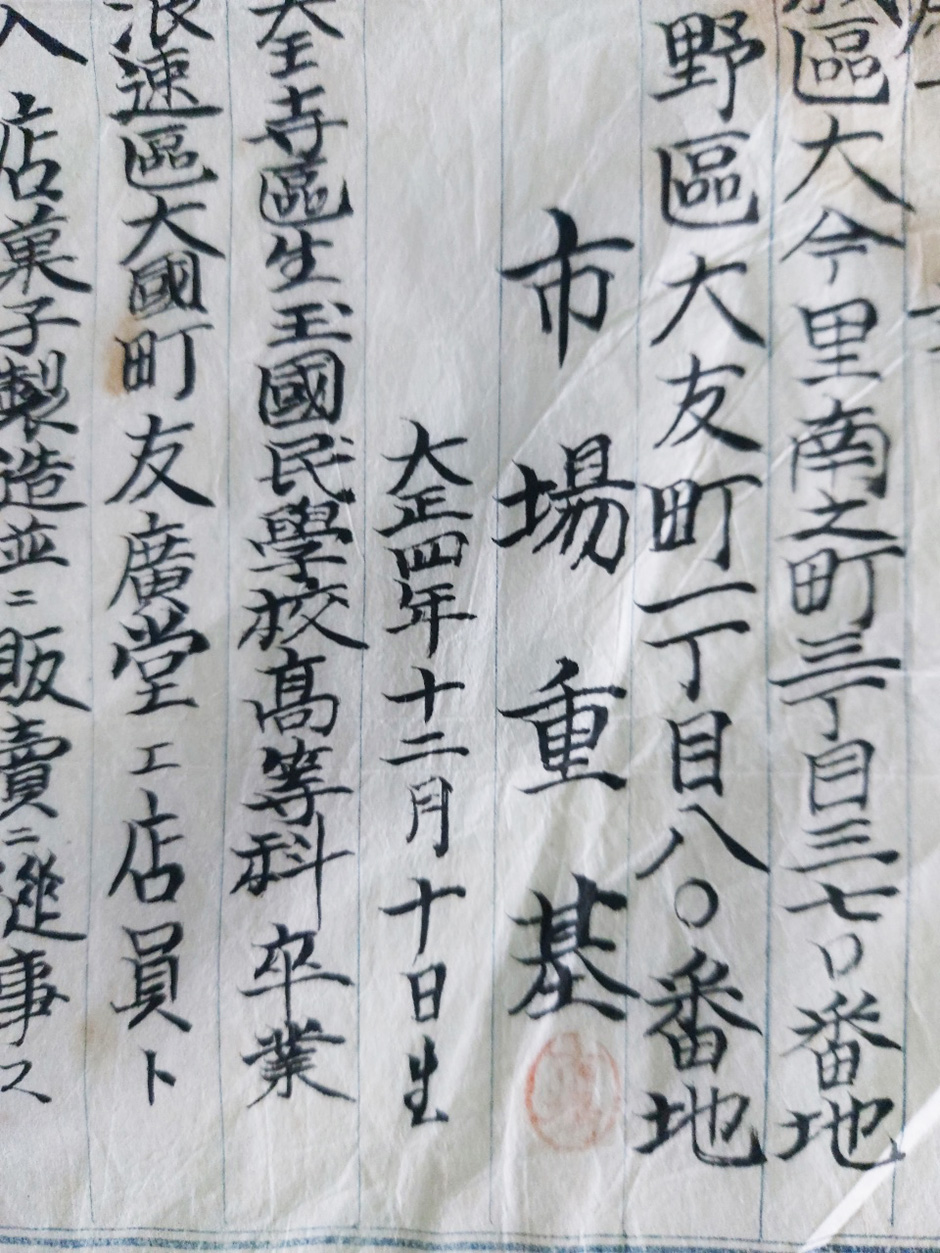 區大今里南之町三丁目三七〇番地
野區大友町一丁目八〇番地
市場重基
大正四年十二月十日生
天王寺區生玉國民學校高等科卒業
浪速區大國町友廣堂エ店員ト
入店菓子製造並ニ販賣ニ進事ス